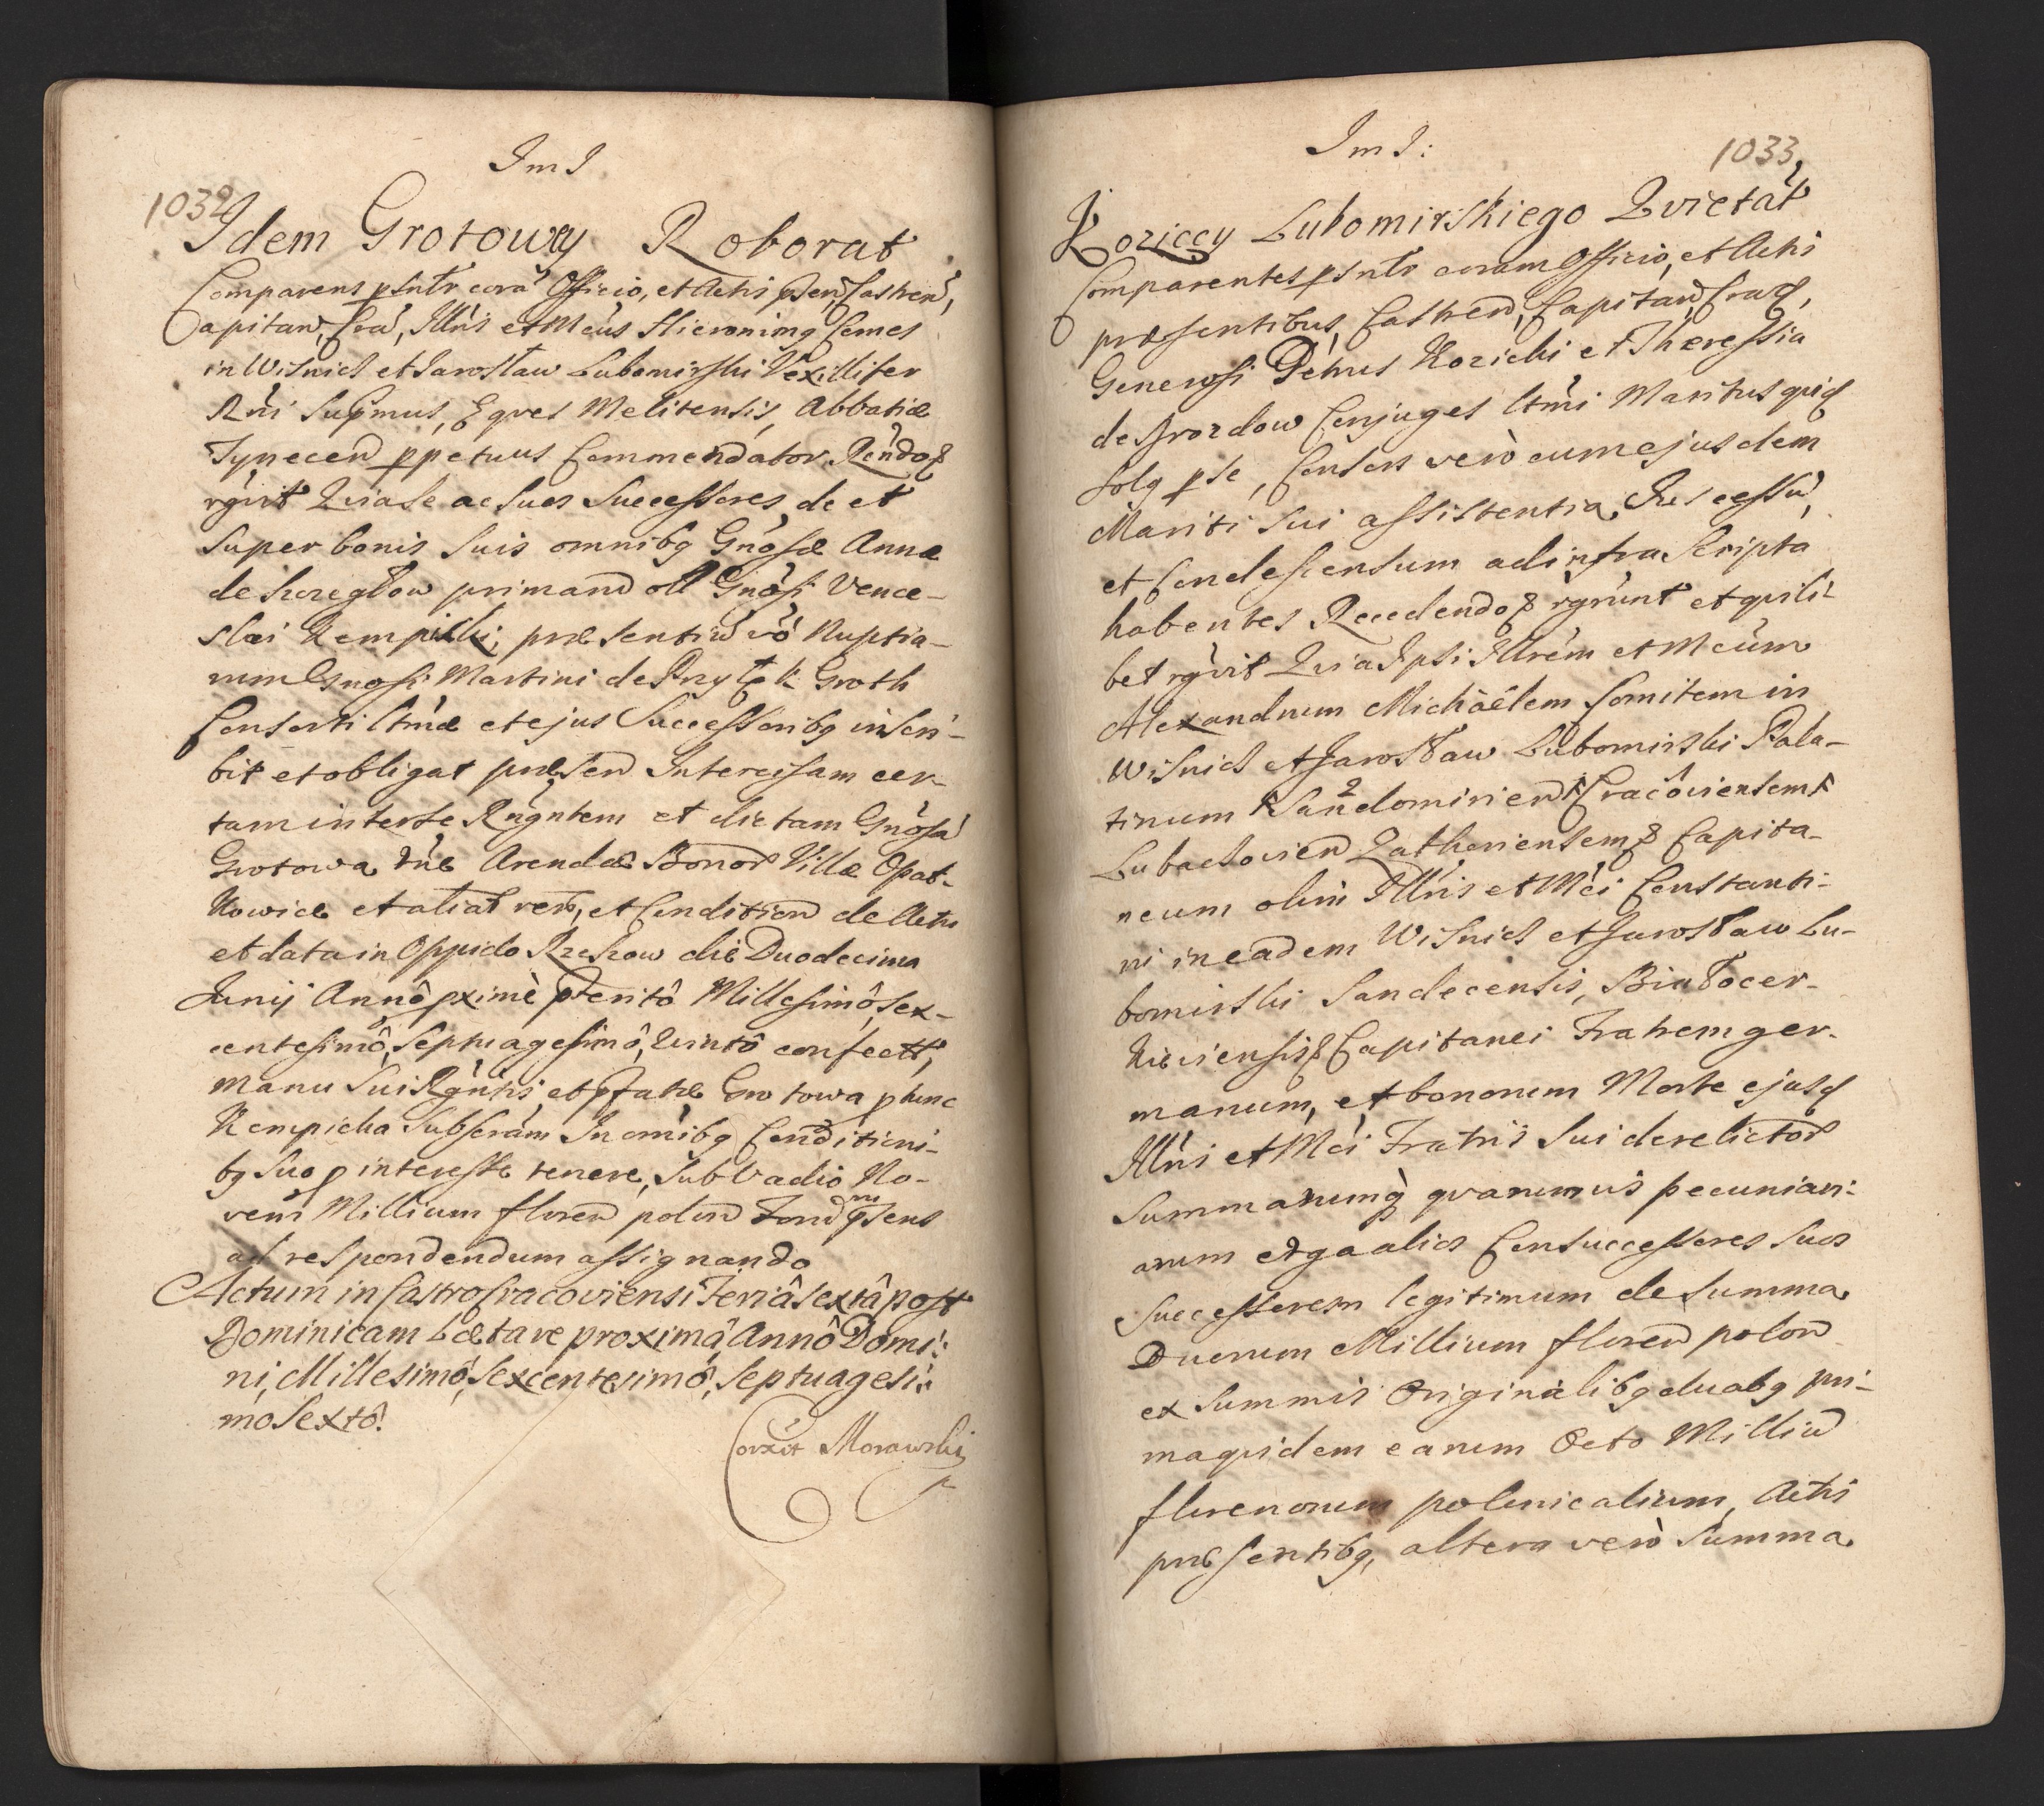 ImI
1032
Idem Grotowey Roborat
Comparens psntr corā Officio, et Actis psen, Castren,
Capitan, Cra, Illris et Mcus Hieronimg Comes
in Wisnicz et Jarosław Lubomirski Vexillifer
Rni Supmus, Eqves Melitensis, Abbatiæ
Tynecen ppetuus Commendator, Rendo&
rgvit Qvia Se ac Suos Successores, de et
Super bonis Suis omnibg Gnosæ Annæ
de Szreglow primand oll Gnosi Vence-
slai Kempicki, præsentiu vō Nuptia-
rum Gnosi Martini de Przytyk Groth
Consorti ltmæ et ejus Successoribg inscri-
bit et obligat præsen Intercisam cer-
tam inter se Rngntem et dictam Gnosā
Grotowa rne Arendæ Bonor Villæ Opat-
kowice et aliar rer, et Condition de Actu
et data in Oppido Rzeszow die Duodecima
Junij Annô pximè pterito Millesimô, Sex-
centesimô, Septuagesimô, Qvintô confectt,
manu Sui Rgntis, et pfatæ Grotowa p tunc
Kempicka Subscram In omibg Conditioni-
bg Suo p interesse tenere, Sub Vadio No-
vem Millium floren polon Forū psens
ad respondendum assignando
Actum in Castro Cracoviensi Feriâ Sextâ post
Dominicam Lætare proximâ, Annô Domi:
ni, Millesimô, Sexcentesimô, Septuagesi:
mo Sextô.
Corxit Morawski
ImI:
1033
Koziccy Lubomirskiego Qvietāt
Comparentes psntr coram Officio, et Actis
præsentibus, Castren, Capitan, Crac,
Generosi Petrus Kozicki et Theressia
de Grozdow Conjuges ltmi Maritus quid
solg p se, Consors verò cum ejusdem
Mariti sui assistentia, Jus cessu,
et Condescensum ad infra Scripta
habentes Recedendo& rgrunt et quili-
bet rgvit Qvia Ipsi Illrem et Mcum
Alexandrum Michaêlem Comitem in
Wisnicz et Jarosław Lubomirski Pala-
tinum Sandomirien Cracoviensem
Lubaczovien Zathoriensem& Capita-
neum olim Illris et Mci Constanti-
ni in eadem Wisnicz et Jarosław Lu-
bomirski Sandecensis, Biatocer-
kieviensis& Capitanei Fratrem ger-
manum, et bonorum Morte ejusd
Illris et Mci Fratris Sui derelictor
Summarumq qvarumvis pecuniari:
arum erga alios Consuccessores Suos
Successorem legitimum de Summa
Duorum Millium floren polon
ex Summis Originalibg duabg pri-
ma qvidem earum Octo Milliu
florenorum polonicalium, Actis
præsentibg, altera verò Summa